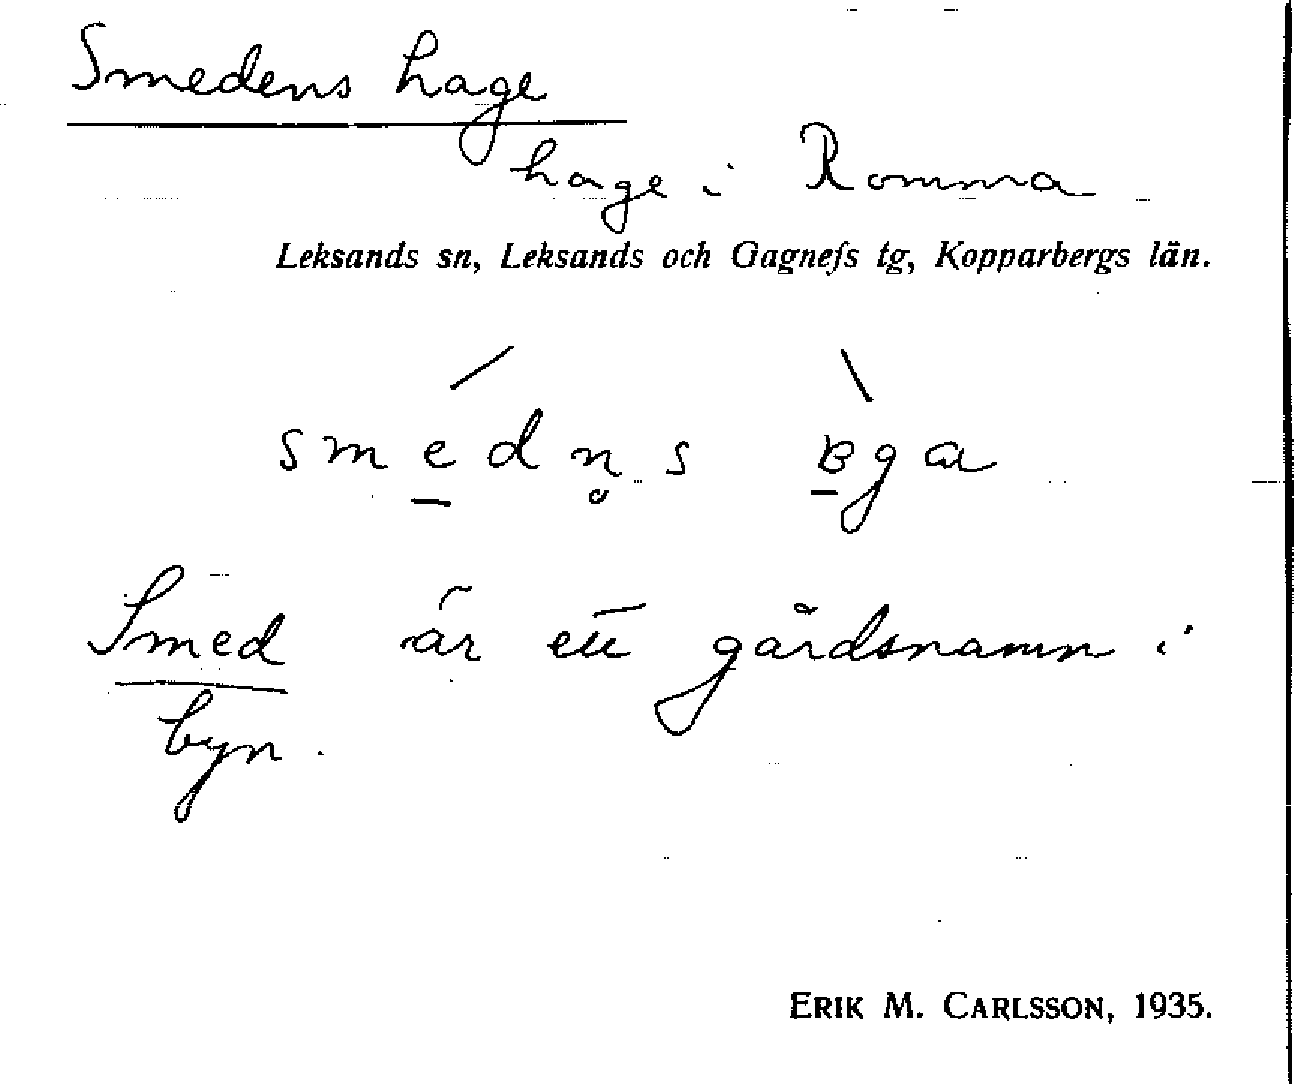 Smedens hage
hage i Romma
Leksands sn, Leksands och Gagnefs tg, Kopparbergs län.
sme̲dn̥s ɐ̲ga
Smed är ett gårdsnamn i
byn.
ERIK M. CARLSSON, 1935.